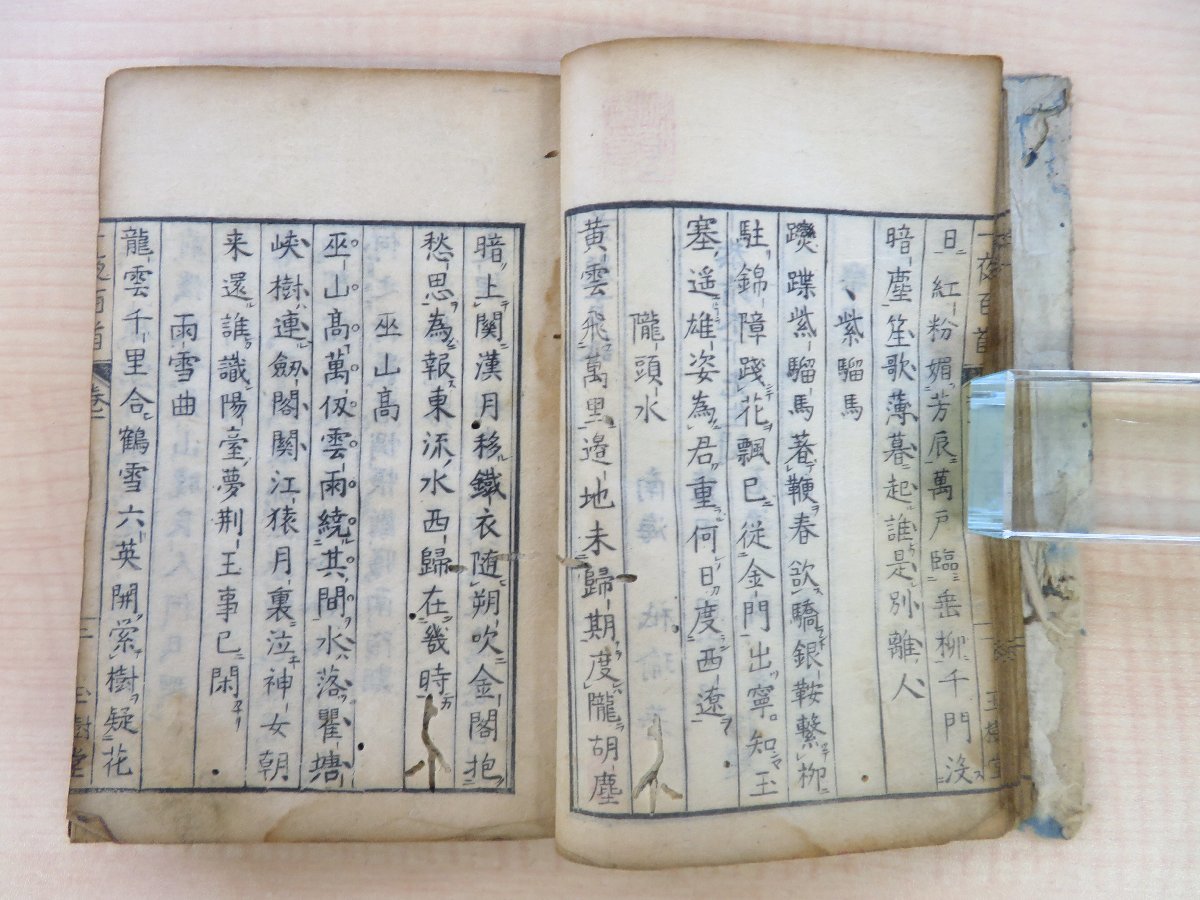 日紅粉媚芳辰萬戶臨垂柳千門沒
暗塵笙歌薄暮起誰是別離人
紫騮馬
躞蹀紫騮馬著鞭春欲驕銀鞍繫柳
駐錦障踐花飄已從金門出寧知玉
塞遥雄姿為君重何日度西遼
隴頭水
黄雲飛萬里邉地未歸期度隴胡塵
暗上關漢月移鐵衣随朔吹金閣抱
愁思為報東流水西歸在幾時
巫山髙
巫山髙萬仭雲雨繞其間水落瞿塘
峽樹連劔閣關江猿月裏泣神女朝
来還誰識陽臺夢荆王事已閑
雨雪曲
龍雲千里合鶴雪六英開縈樹疑花
一夜百首